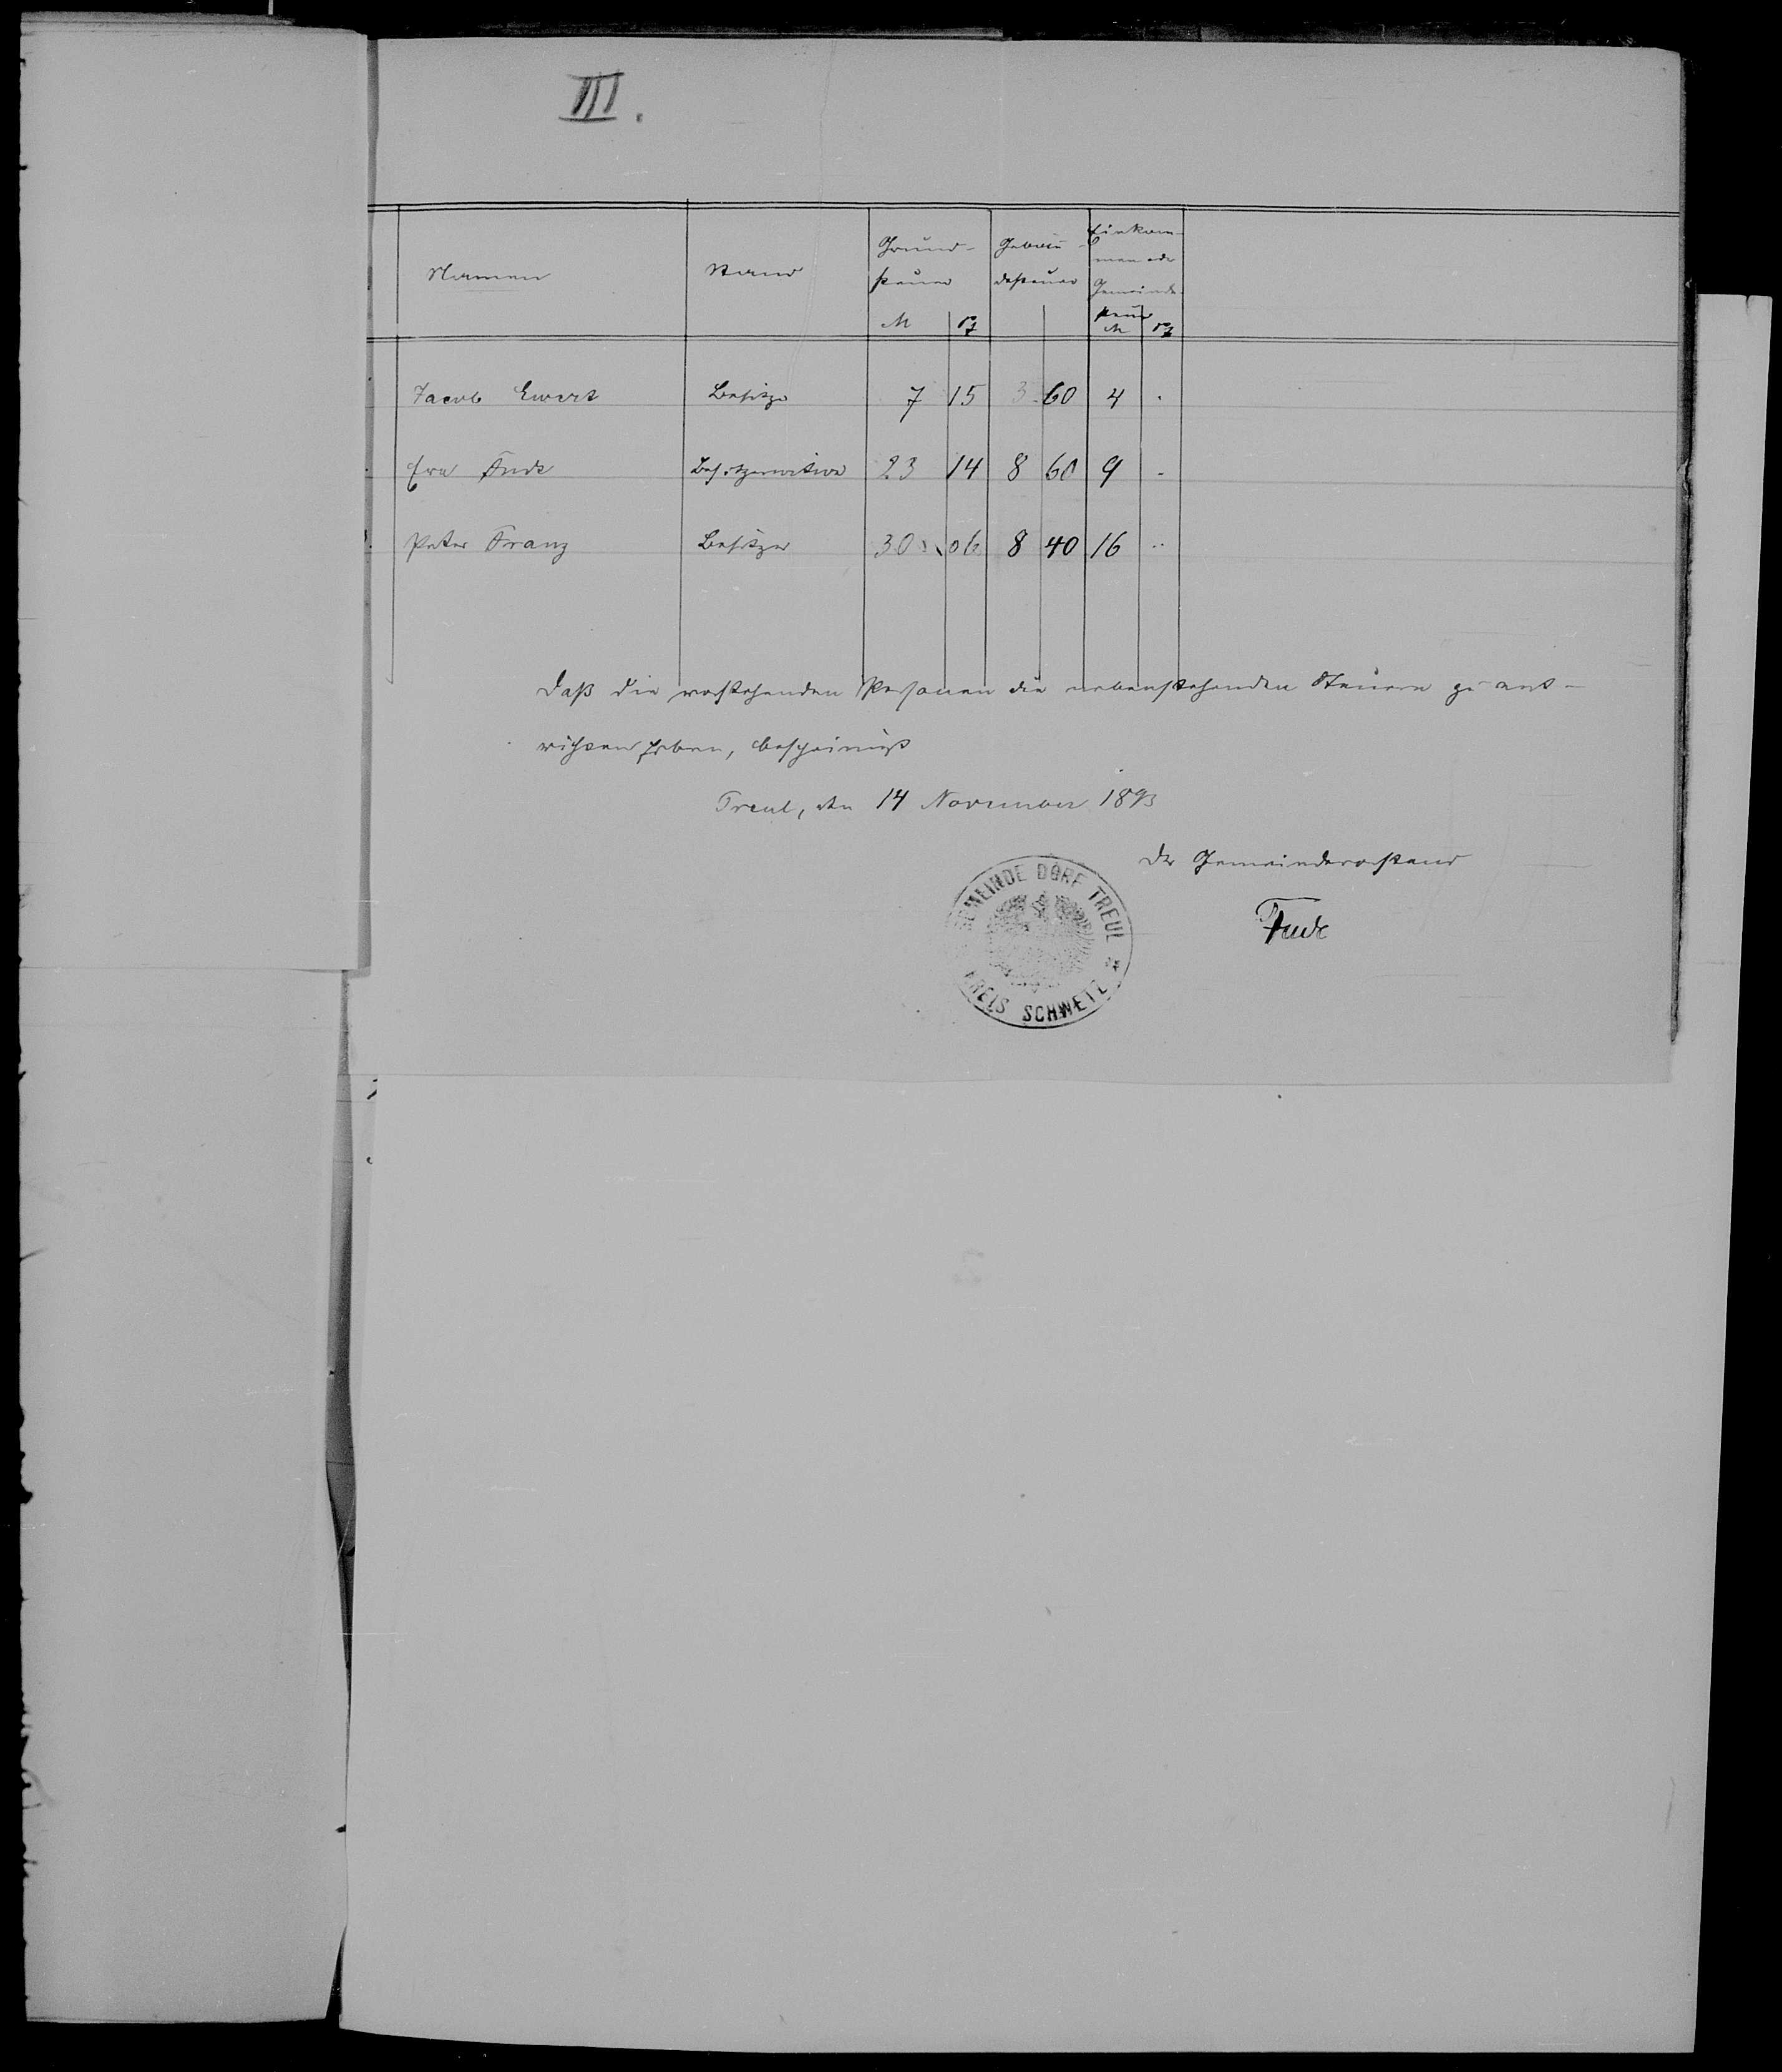 III.
Namen Stand Grund- Gebäu- Einkom-
steuer desteuer men oder
Gemeinde
steuer
M Pf M Pf
Jacob Ewert Besitzer 7 15 3 60 4 .
Eva Funk Besitzerwitwe 23 14 8 60 9 -
Peter Franz Besitzer 30 06 8 40 16 ..
Daß die vorstehenden Personen die nebenstehenden Steuern zu ent-
richten haben, bescheinigt
Treul, den 14 November 1893
Der Gemeindevorstand
Funk
GEMEINDE DORF TREUL *
KREIS SCHWETZ